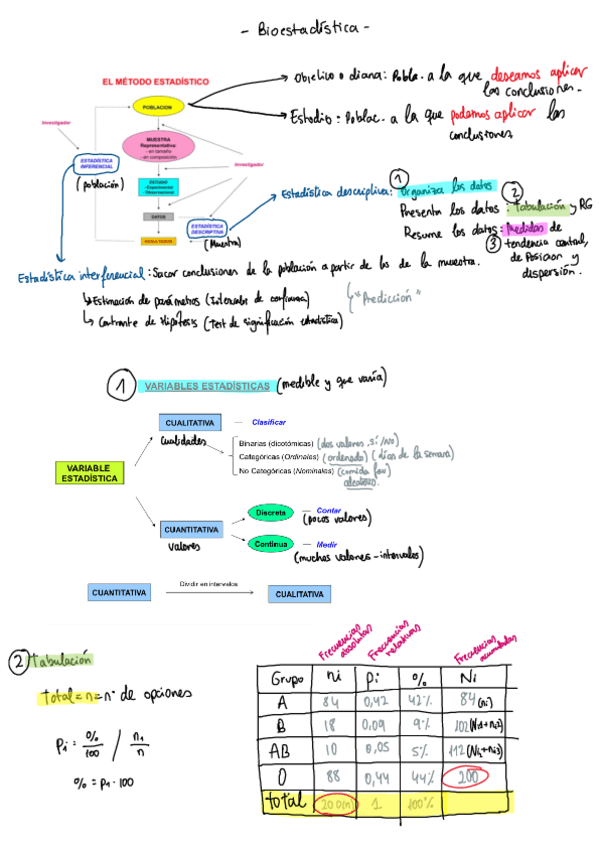 - Bioestadística -
EL MÉTODO ESTADÍSTICO
POBLACION
Investigador
MUESTRA
Representativo:
- en tamaño
- en composición
ESTADÍSTICA
INFERENCIAL
(población)
Investigador
ESTUDIO
- Experimental
- Observacional
DATOS
ESTADÍSTICA
DESCRIPTIVA
(Muestra)
RESULTADOS
Objetivo o diana: Pobla. a la que deseamos aplicar
las conclusiones.
Estudio: Poblac. a la que podamos aplicar las
conclusiones
Estadística descriptiva: ① Organiza los datos
Presenta los datos: ② Tabulación y RG
Resume los datos: Medidas de
③ tendencia central,
de Posicion y
dispersión.
Estadística interferencial: Sacar conclusiones de la población a partir de las de la muestra.
↳ Estimación de parámetros (Intervalos de confianza)
"Predicción"
↳ Contraste de Hipótesis (Test de significación estadística)
① VARIABLES ESTADÍSTICAS (medible y que varía)
CUALITATIVA — Clasificar
cualidades
Binarias (dicotómicas) (dos valores. sí/No)
Categóricas (Ordinales) (ordenado) (días de la semana)
No Categóricas (Nominales) (comida fav)
aleatorio.
VARIABLE
ESTADÍSTICA
CUANTITATIVA
valores
Discreta — Contar
(pocos valores)
Continua — Medir
(muchos valores - intervalos)
CUANTITATIVA Dividir en intervalos CUALITATIVA
② Tabulación
Total = n = nº de opciones
Pi = %/100 / n1/n
% = P1 · 100
Frecuencias absolutas Frecuencias relativas Frecuencias acumuladas
Grupo ni pi % Ni
A 84 0,42 42% 84 (ni)
B 18 0,09 9% 102 (Ni1+ni2)
AB 10 0,05 5% 112 (Ni2+ni3)
O 88 0,44 44% 200
total 200(n) 1 100%